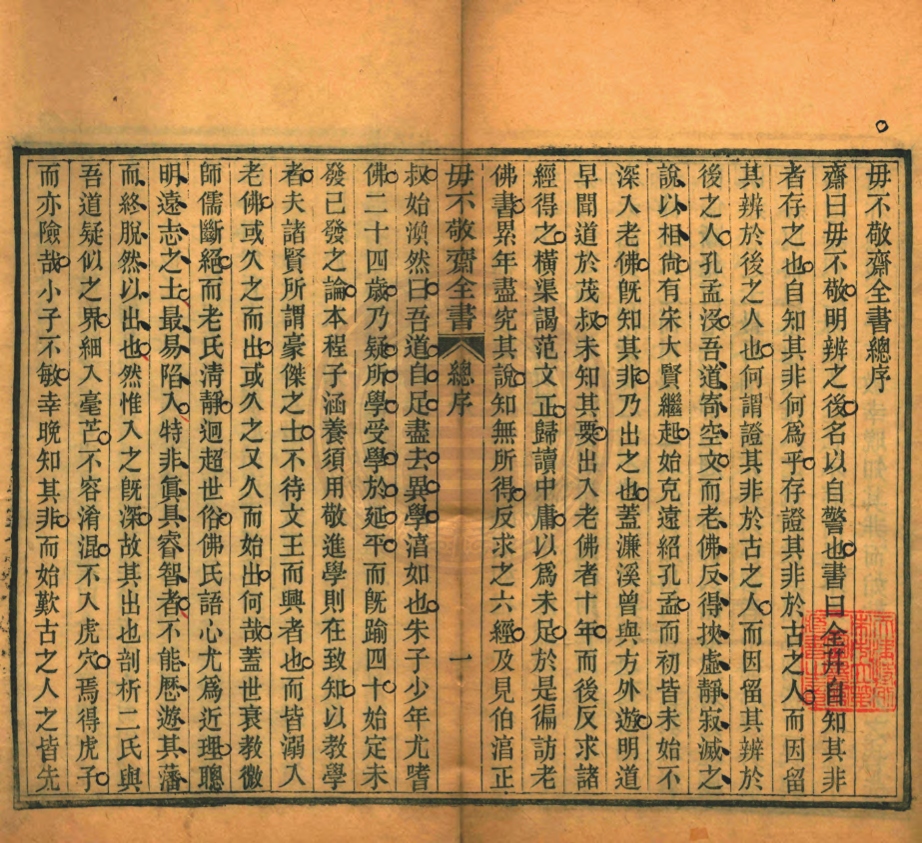 毋不敬齋全書總序
齋曰毋不敬明辨之後名以自警也書曰全幷自知其非
者存之也自知其非何爲乎存證其非於古之人而因留
其辨於後之人也何謂證其非於古之人而因留其辨於
後之人孔孟沒吾道寄空文而老佛反得挾虛靜寂滅之
說以相尙有宋大賢繼起始克遠紹孔孟而初皆未始不
深入老佛旣知其非乃出之也蓋濂溪曾與方外遊明道
早聞道於茂叔未知其要出入老佛者十年而後反求諸
經得之橫渠謁范文正歸讀中庸以爲未足於是徧訪老
佛書累年盡究其說知無所得反求之六經及見伯淳正
毋不敬齋全書 總序 一
叔始渙然曰吾道自足盡去異學淳如也朱子少年尤嗜
佛二十四歲乃疑所學受學於延平而旣踰四十始定未
發已發之論本程子涵養須用敬進學則在致知以教學
者夫諸賢所謂豪傑之士不待文王而興者也而皆溺入
老佛或久之而出或久之又久而始出何哉蓋世衰教微
師儒斷絕而老氏淸靜迥超世俗佛氏語心尤爲近理聰
明遠志之士最易陷入特非眞具睿智者不能歷遊其藩
而終脫然以出也然惟入之旣深故其出也剖析二氏與
吾道疑似之界細入毫芒不容淆混不入虎穴焉得虎子
而亦險哉小子不敏幸晚知其非而始歎古之人之皆先